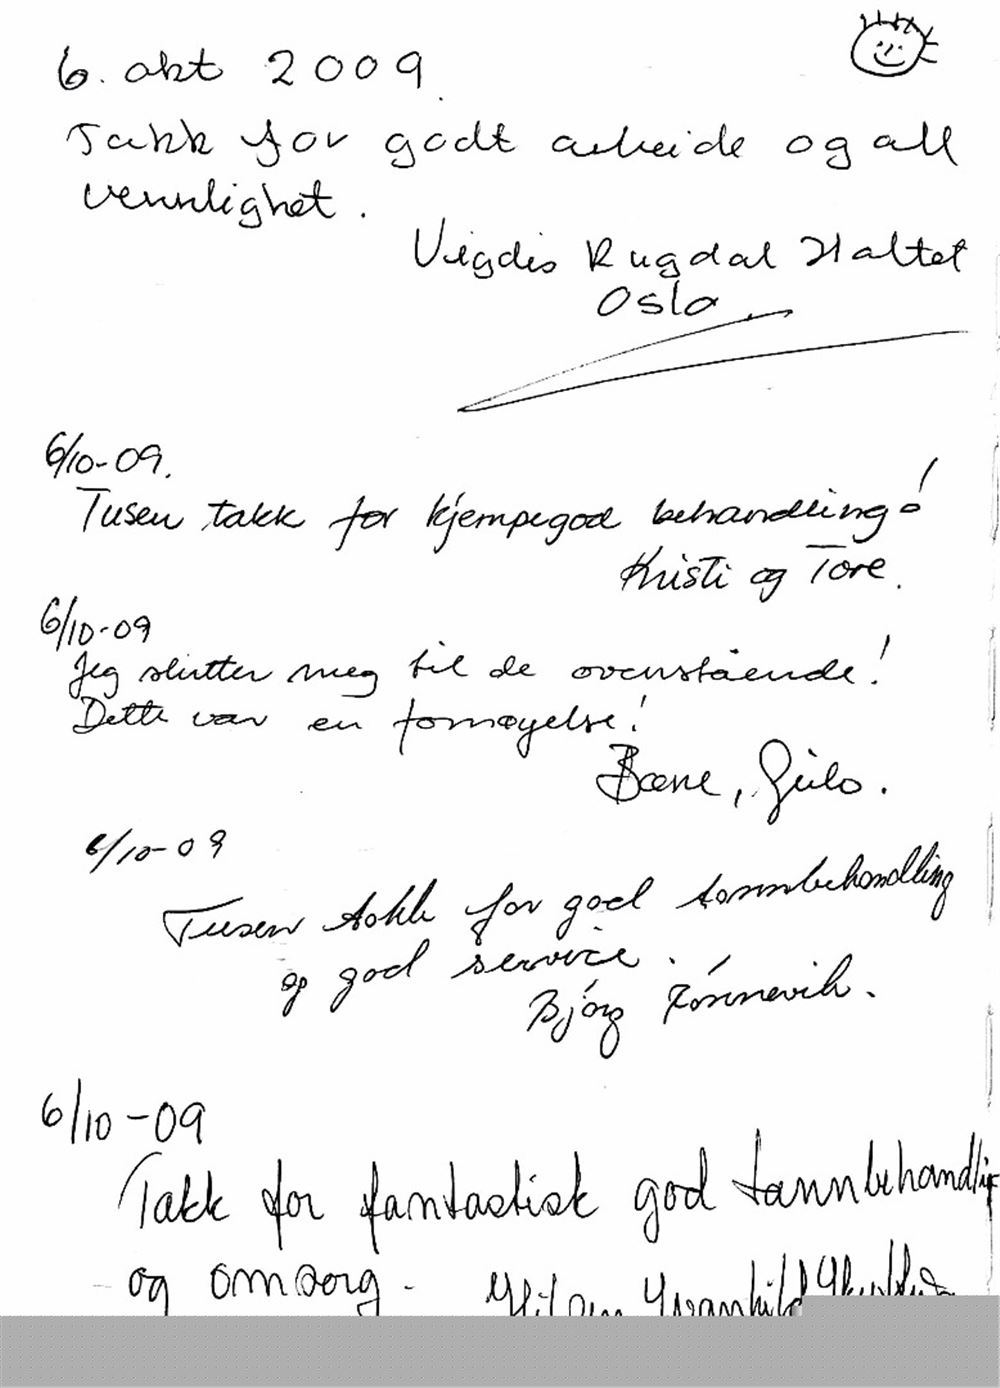 6. okt 2009
Takk for godt arbeide og all
vennlighet.
Vigdis Rugdal Haltet
Oslo
6/10-09.
Tusen takk for kjempegod behandling!
Kristi og Tore.
6/10-09
Jeg slutter meg til de ovenstående!
Dette var en fornøyelse!
Geilo.
6/10-09
Tusen takk for god tannbehandling
og god service.
Bjórg
6/10-09
Takk for fantastisk god tannbehandling
og omsorg.
Hilsen